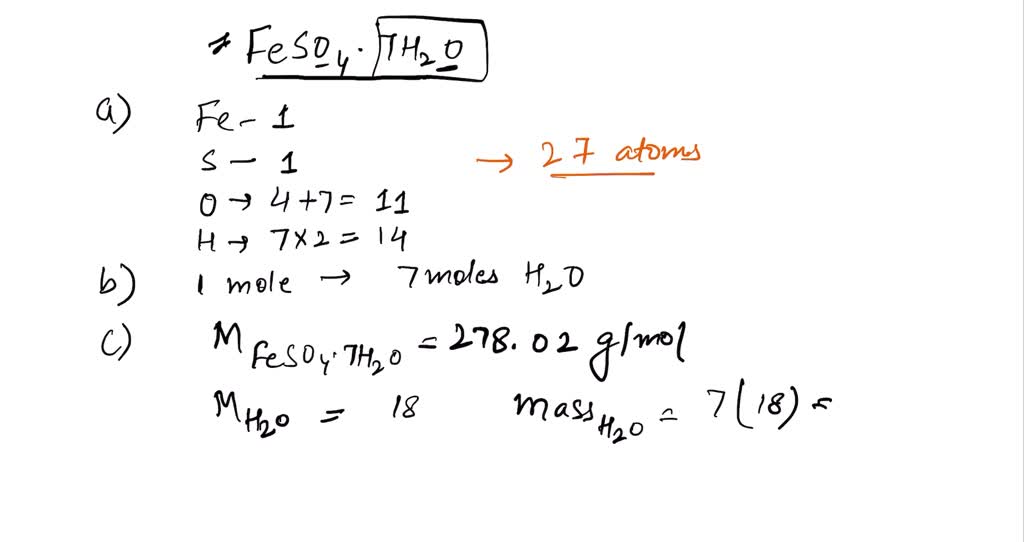 * FeSO₄ · 7H₂O
a) Fe - 1
S - 1 → 27 atoms
O → 4+7 = 11
H → 7×2 = 14
b) 1 mole → 7 moles H₂O
c) M FeSO₄·7H₂O = 278.02 g/mol
M H₂O = 18 mass H₂O = 7(18) =